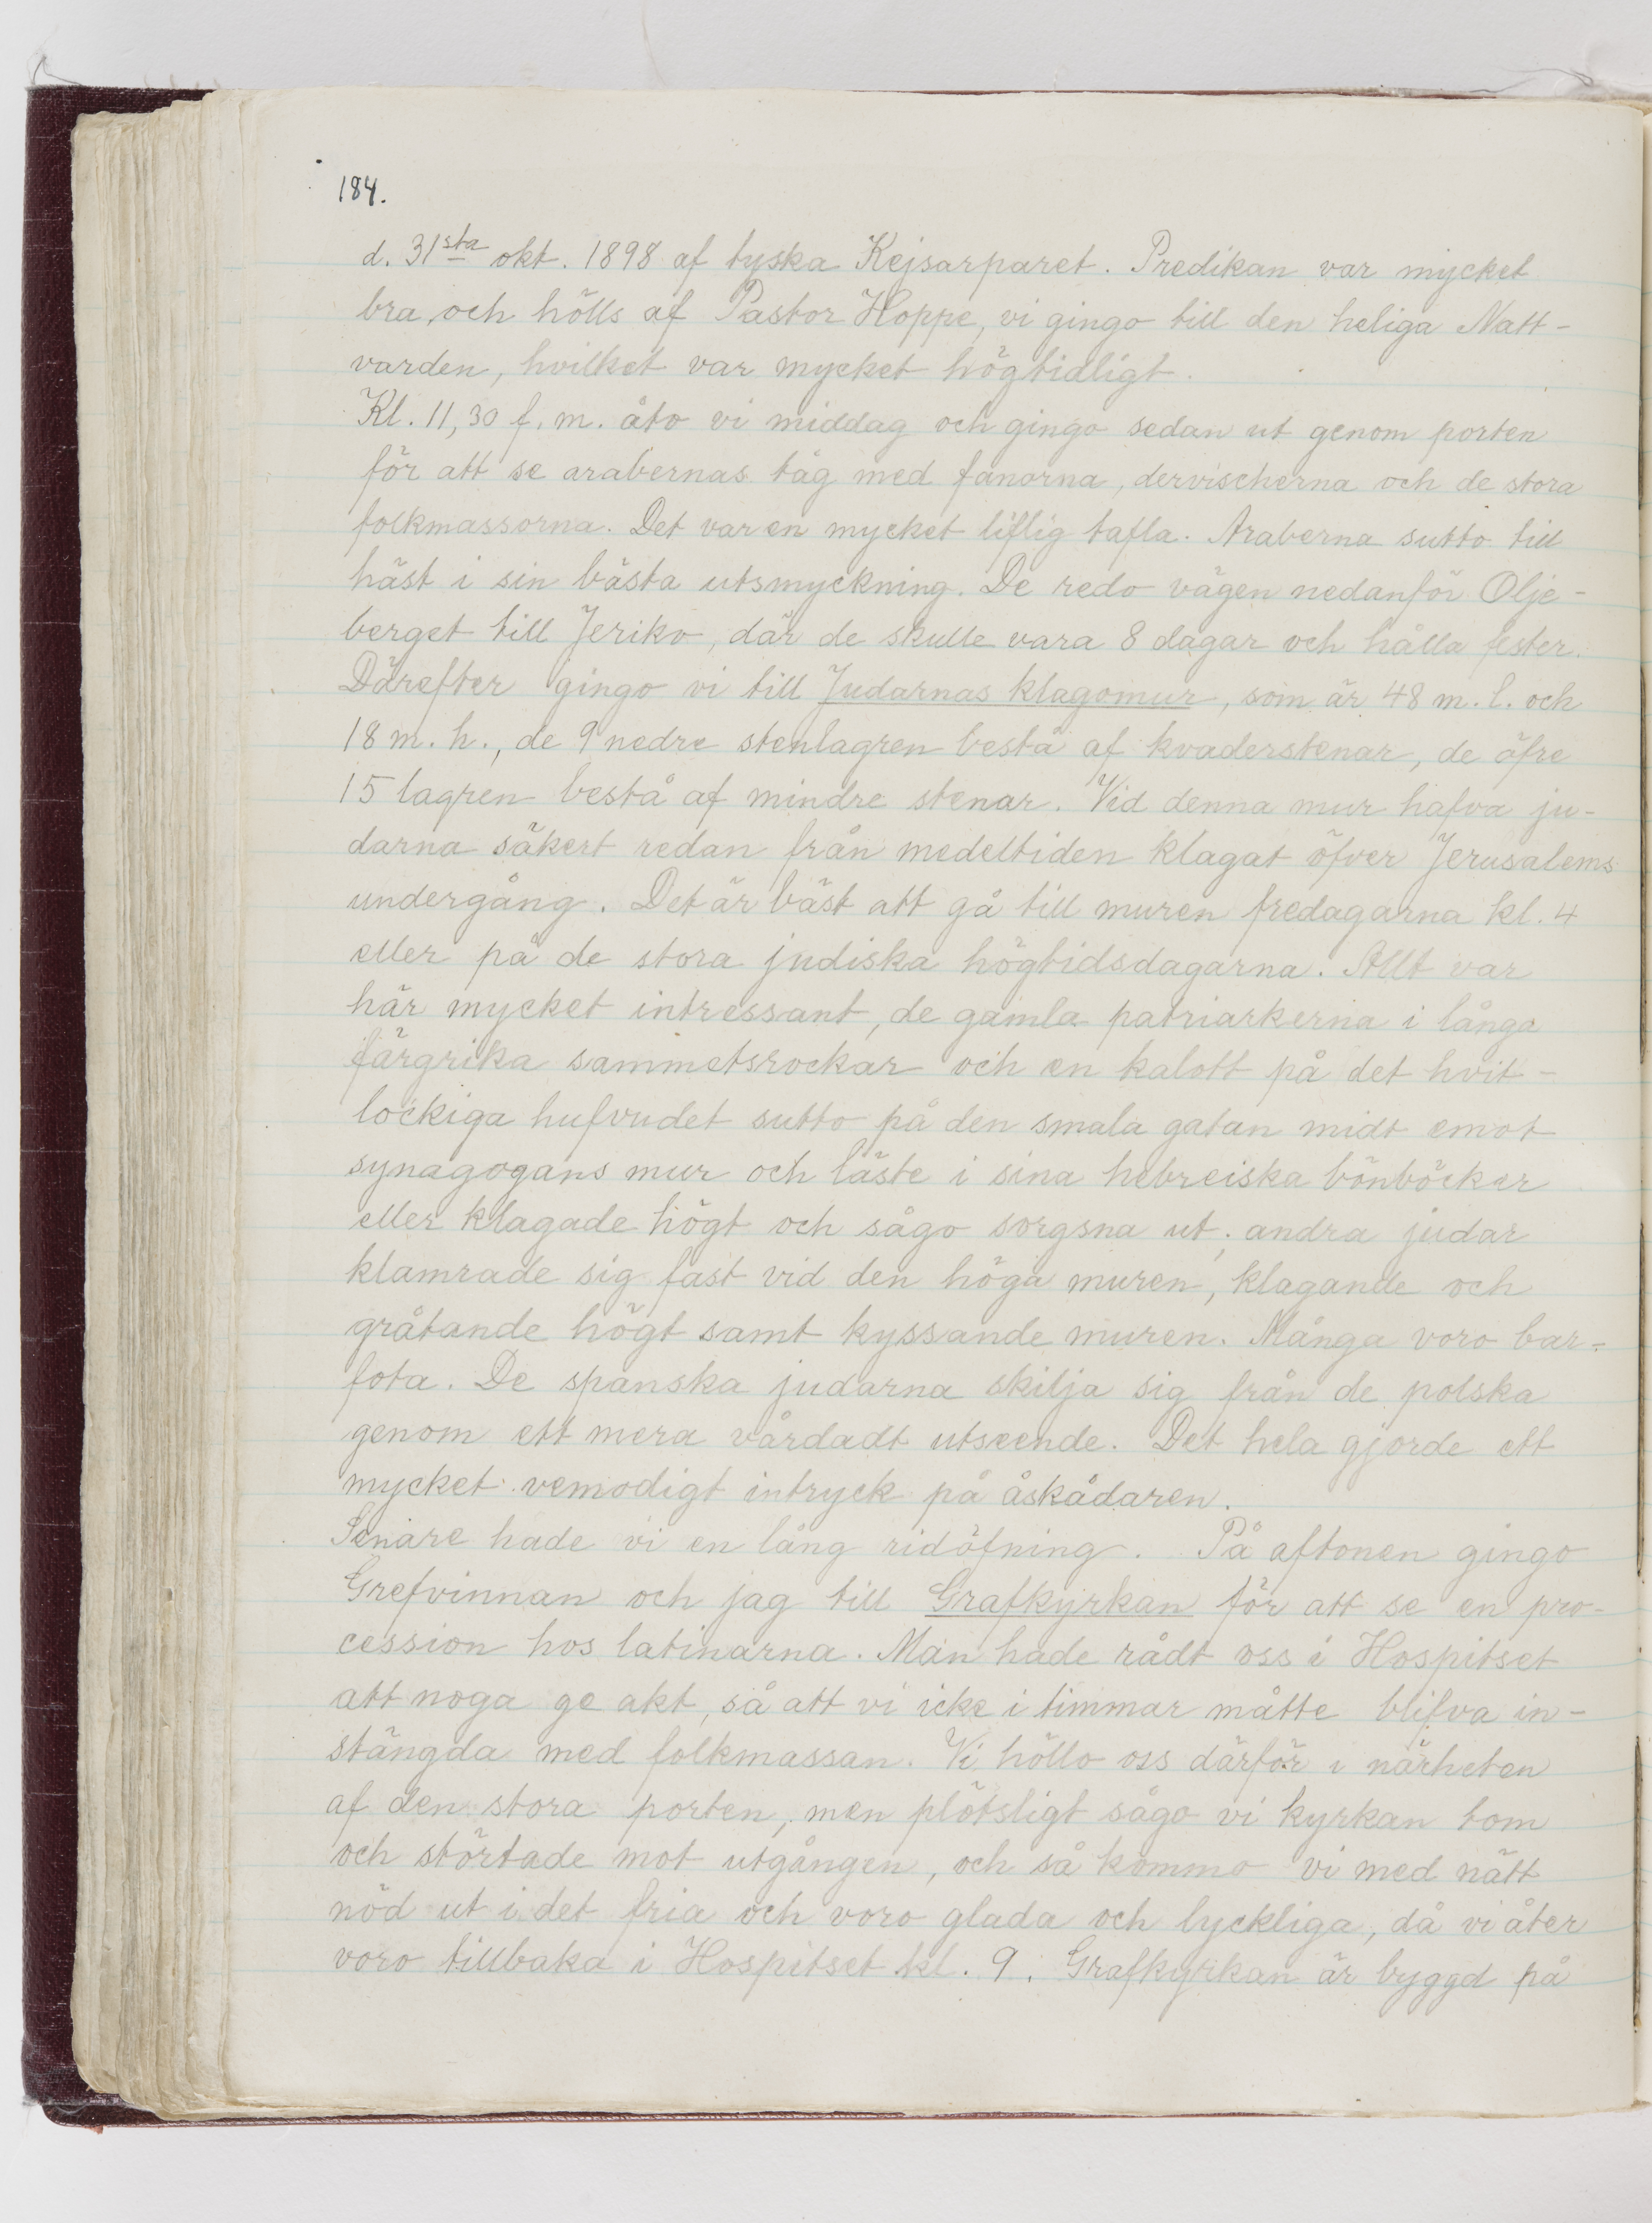 184.
d. 31sta okt. 1898 af tyska Kejsarparet. Predikan var mycket
bra, och hölls af Pastor Hoppe, vi gingo till den heliga Natt-
varden, hvilket var mycket högtidligt.
Kl. 11,30 f.m. åto vi middag och gingo sedan ut genom porten
för att se arabernas tåg med fanorna, dervischerna och de stora
folkmassorna. Det var en mycket liflig tafla. Araberna sutto till
häst i sin bästa utsmyckning. De redo vägen nedanför Olje-
berget till Jeriko, där de skulle vara 8 dagar och hålla fester.
Därefter gingo vi till Judarnas klagomur, som är 48 m. l. och
18 m. h., de 9 nedre stenlagren bestå af kvaderstenar, de öfre
15 lagren bestå af mindre stenar. Vid denna mur hafva ju-
darna säkert redan från medeltiden klagat öfver Jerusalems
undergång. Det är bäst att gå till muren fredagarna kl. 4
eller på de stora judiska högtidsdagarna. Allt var
här mycket intressant, de gamla patriarkerna i långa
färgrika sammetsrockar och en kalott på det hvit-
lockiga hufvudet sutto på den smala gatan midt emot
synagogans mur och läste i sina hebreiska bönböcker
eller klagade högt och sågo sorgsna ut; andra judar
klamrade sig fast vid den höga muren, klagande och
gråtande högt samt kyssande muren. Många voro bar-
fota. De spanska judarna skilja sig från de polska
genom ett mera vårdadt utseende. Det hela gjorde ett
mycket vemodigt intryck på åskådaren.
Senare hade vi en lång ridöfning. På aftonen gingo
Grefvinnan och jag till Grafkyrkan för att se en pro-
cession hos latinarna. Man hade rådt oss i Hospitset
att noga ge akt, så att vi icke i timmar måtte blifva in-
stängda med folkmassan. Vi höllo oss därför i närheten
af den stora porten, men plötsligt sågo vi kyrkan tom
och störtade mot utgången, och så kommo vi med nätt
nöd ut i det fria och voro glada och lyckliga, då vi åter
voro tillbaka i Hospitset kl. 9. Grafkyrkan är byggd på